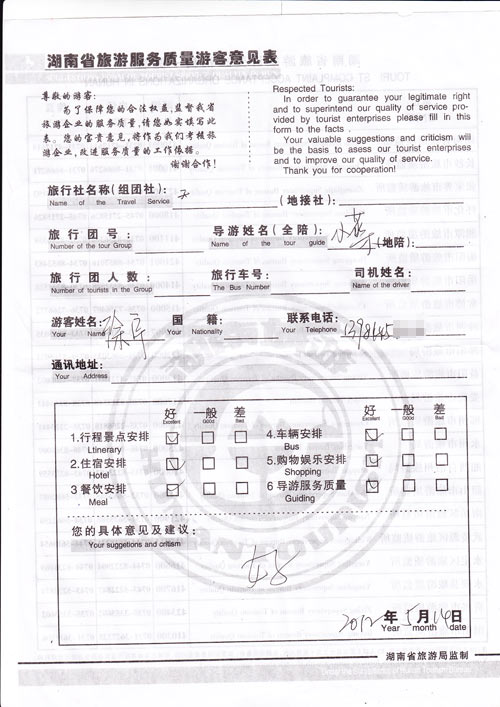 湖南省旅游服务质量游客意见表
尊敬的游客:
为了保障您的合法权益,监督我省
旅游企业的服务质量,请您如实填写此
表。您的宝贵意见,将作为我们考核旅
游企业,改进服务质量的工作依据。
谢谢合作!
Respected Tourists:
In order to guarantee your legitimate right
and to superintend our quality of service pro-
vided by tourist enterprises please fill in this
form to the facts .
Your valuable suggestions and criticism will
be the basis to asess our tourist enterprises
and to improve our quality of service.
Thank you for cooperation!
旅行社名称(组团社): (地接社):
Name of the Travel Service
旅行团号: 导游姓名(全陪): (地陪):
Number of the tour Group Name of the tour guide
旅行团人数: 旅行车号: 司机姓名:
Number of tourists in the Group The Bus Number Name of the driver
游客姓名: 徐军 国籍: 联系电话: 1398645
Your Name Your Nationality Your Telephone
通讯地址:
Your Address
好 一般 差 好 一般 差
Excellent Good Bad Excellent Good Bad
1.行程景点安排 4.车辆安排
Ltinerary Bus
2.住宿安排 5.购物娱乐安排
Hotel Shopping
3 餐饮安排 6 导游服务质量
Meal Guiding
您的具体意见及建议:
Your suggetions and critism
好
2012 年 5 月 14 日
Year month date
湖南省旅游局监制